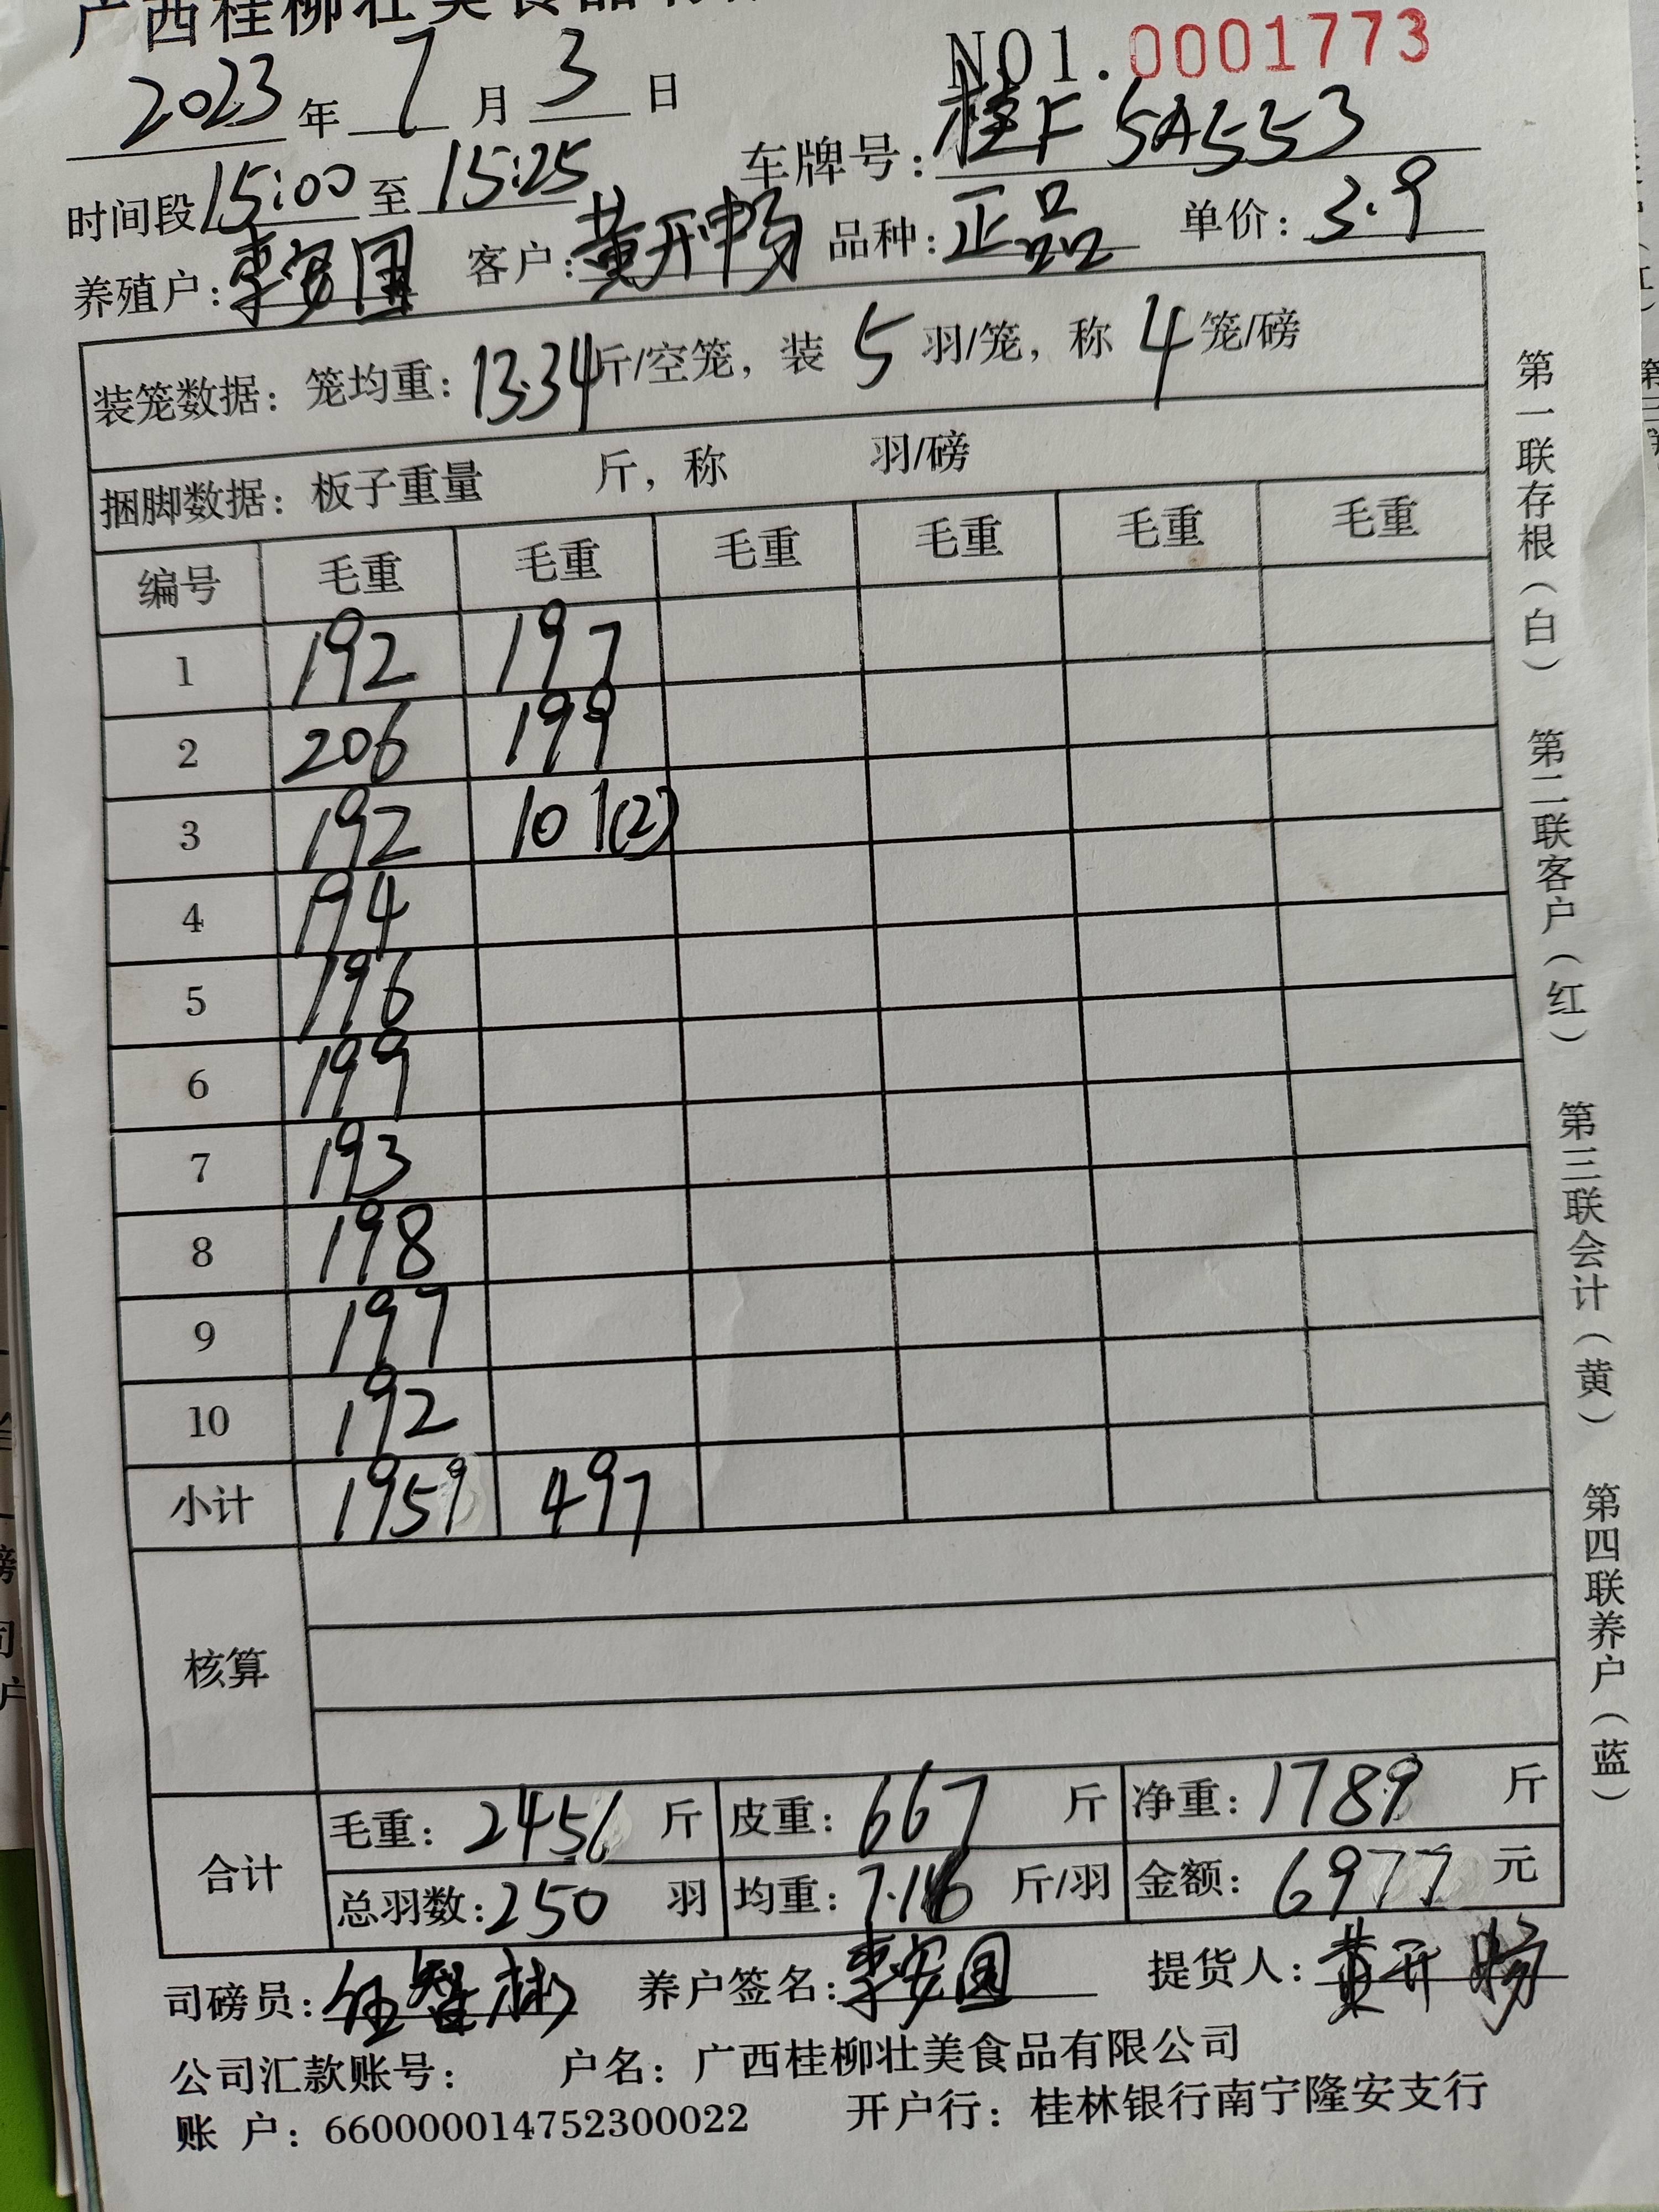 广西桂柳壮美食品有限
2023年7月3日 NO1.0001773
时间段15:00至15:25 车牌号:桂F5A553
养殖户:李安国 客户:黄开畅 品种:正品 单价:3.9
装笼数据:笼均重:13.34斤/空笼,装5羽/笼,称4笼/磅
捆脚数据:板子重量 斤,称 羽/磅
编号 毛重 毛重 毛重 毛重 毛重 毛重
1 192 197
2 206 199
3 192 101(2)
4 194
5 196
6 199
7 193
8 198
9 197
10 192
小计 1959 497
核算
合计 毛重:2456斤 皮重:667斤 净重:1789斤
总羽数:250羽 均重:7.16斤/羽 金额:6977元
司磅员:伍智彬 养户签名:李安国 提货人:黄开畅
公司汇款账号: 户名:广西桂柳壮美食品有限公司
账户:660000014752300022 开户行:桂林银行南宁隆安支行
第一联存根(白) 第二联客户(红) 第三联会计(黄) 第四联养户(蓝)